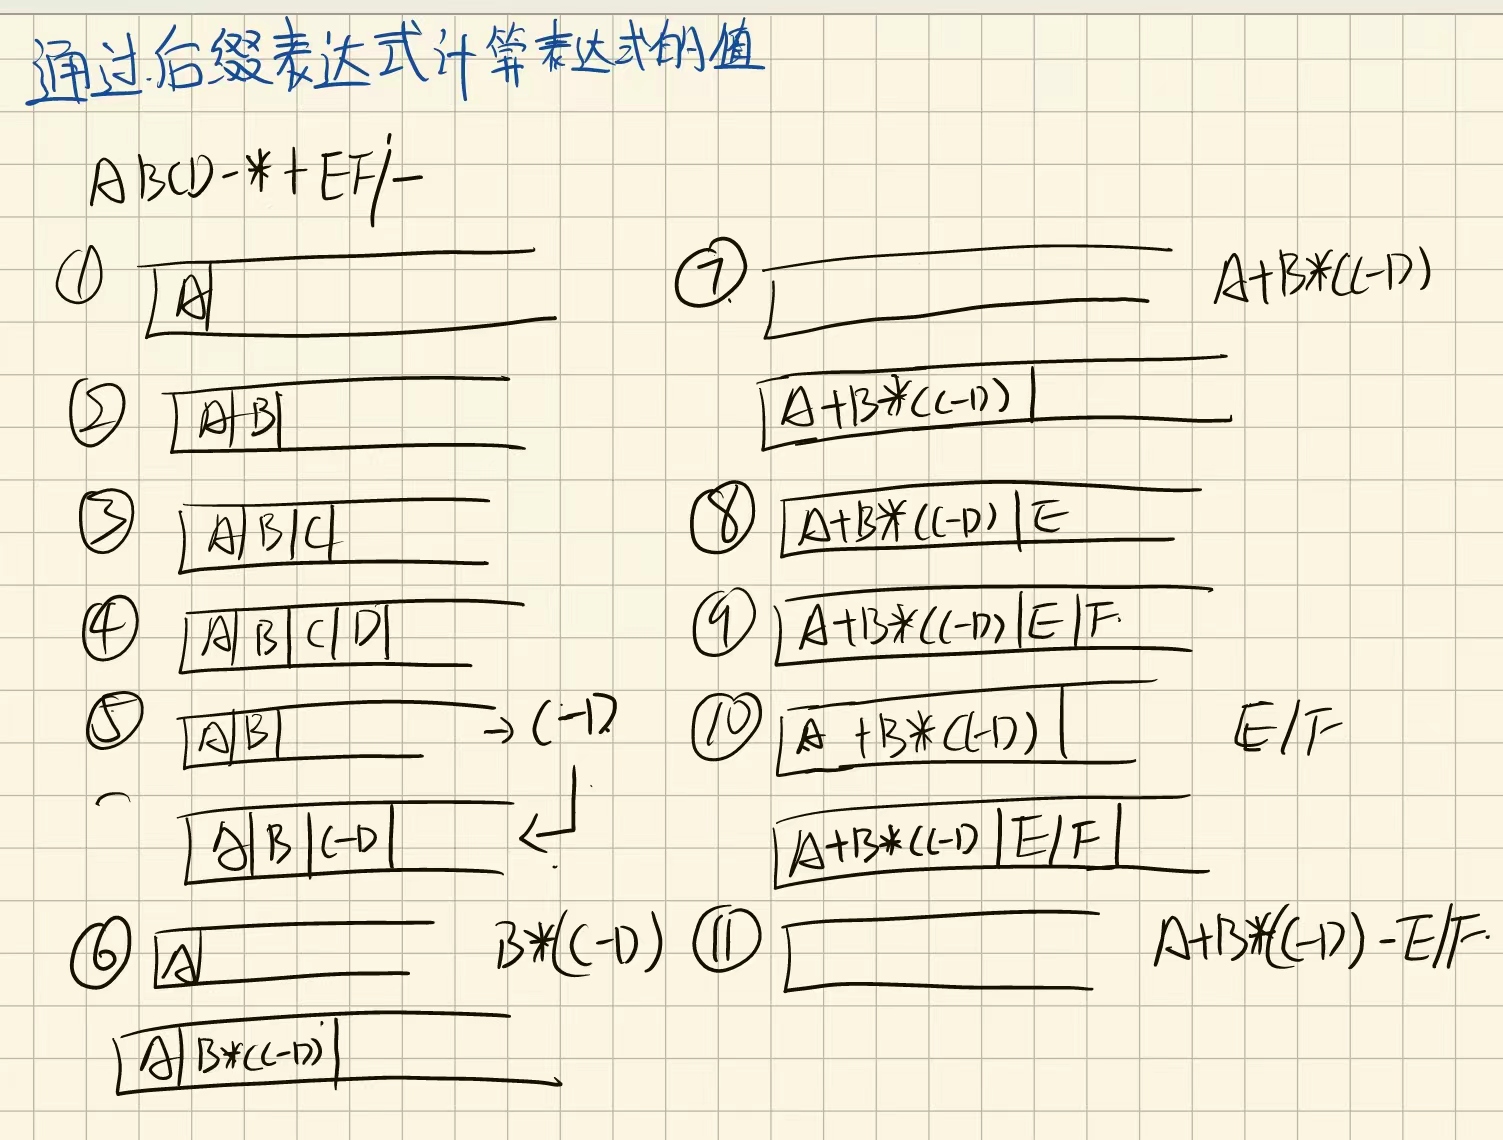 通过后缀表达式计算表达式的值
ABCD-*+EF/-
① A
② A|B|
③ A|B|C|
④ A|B|C|D|
⑤ A|B| → C-D
A|B|C-D|
⑥ A| B*(C-D)
A|B*(C-D)|
⑦ A+B*(C-D)
A+B*(C-D)|
⑧ A+B*(C-D)|E
⑨ A+B*(C-D)|E|F
⑩ A+B*(C-D)| E/F
A+B*(C-D|E/F|
⑪ A+B*(C-D)-E/F